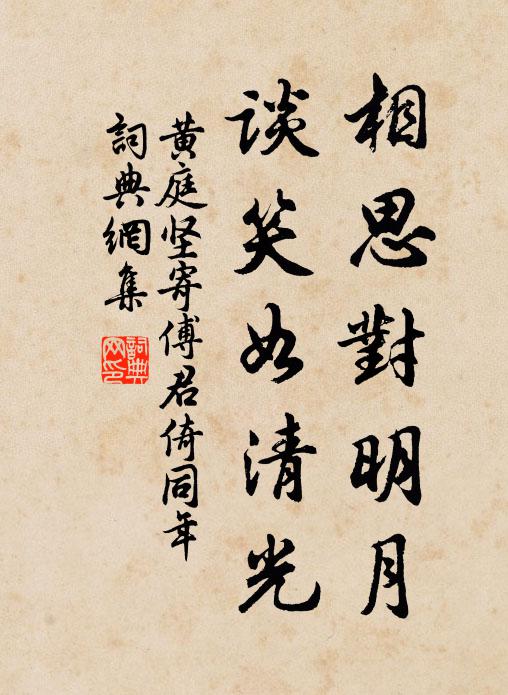 相思對明月
談笑如清光
黄庭坚寄傅君倚同年
詞典網集
詞典
网印